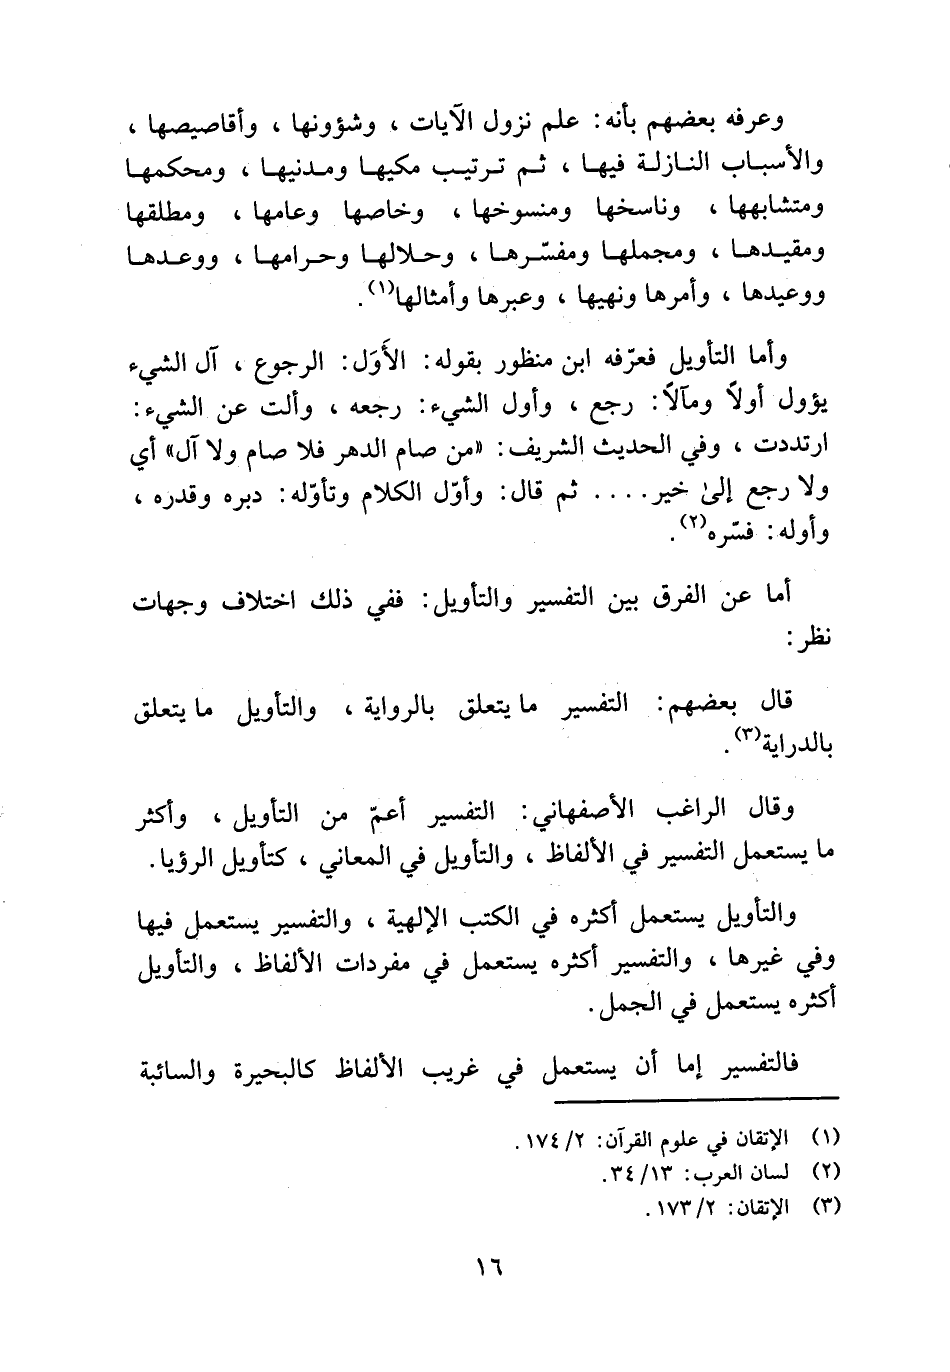 وعرفه بعضهم بأنه: علم نزول الآيات ، وشؤونها ، وأقاصيصها ،
والأسباب النازلة فيها ، ثم ترتيب مكيها ومدنيها ، ومحكمها
ومتشابهها ، وناسخها ومنسوخها ، وخاصها وعامها ، ومطلقها
ومقيدها ، ومجملها ومفسّرها ، وحلالها وحرامها ، ووعدها
ووعيدها ، وأمرها ونهيها ، وعبرها وأمثالها(١).
وأما التأويل فعرّفه ابن منظور بقوله: الأَوَل: الرجوع ، آل الشيء
يؤول أولاً ومآلاً: رجع ، وأول الشيء: رجعه ، وألت عن الشيء:
ارتددت ، وفي الحديث الشريف: «من صام الدهر فلا صام ولا آل» أي
ولا رجع إلىٰ خير.... ثم قال: وأوّل الكلام وتأوّله: دبره وقدره ،
وأوله: فسّره(٢).
أما عن الفرق بين التفسير والتأويل: ففي ذلك اختلاف وجهات
نظر:
قال بعضهم: التفسير ما يتعلق بالرواية ، والتأويل ما يتعلق
بالدراية(٣).
وقال الراغب الأصفهاني: التفسير أعمّ من التأويل ، وأكثر
ما يستعمل التفسير في الألفاظ ، والتأويل في المعاني ، كتأويل الرؤيا.
والتأويل يستعمل أكثره في الكتب الإلهية ، والتفسير يستعمل فيها
وفي غيرها ، والتفسير أكثره يستعمل في مفردات الألفاظ ، والتأويل
أكثره يستعمل في الجمل.
فالتفسير إما أن يستعمل في غريب الألفاظ كالبحيرة والسائبة
(١) الإتقان في علوم القرآن: ٢/ ١٧٤.
(٢) لسان العرب: ١٣/ ٣٤.
(٣) الإتقان: ٢/ ١٧٣.
١٦